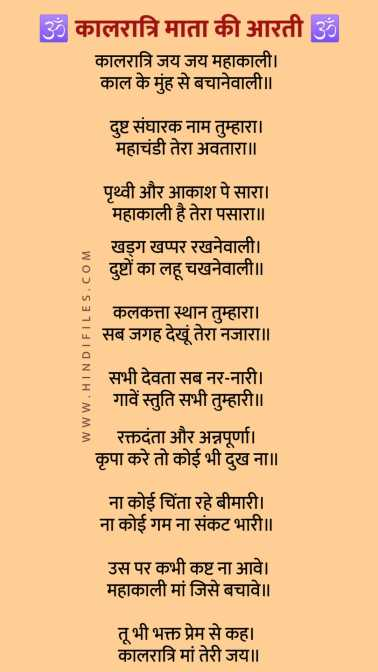 🕉 कालरात्रि माता की आरती 🕉
कालरात्रि जय जय महाकाली।
काल के मुंह से बचानेवाली॥
दुष्ट संघारक नाम तुम्हारा।
महाचंडी तेरा अवतारा॥
पृथ्वी और आकाश पे सारा।
महाकाली है तेरा पसारा॥
खड्ग खप्पर रखनेवाली।
दुष्टों का लहू चखनेवाली॥
कलकत्ता स्थान तुम्हारा।
सब जगह देखूं तेरा नजारा॥
सभी देवता सब नर-नारी।
गावें स्तुति सभी तुम्हारी॥
रक्तदंता और अन्नपूर्णा।
कृपा करे तो कोई भी दुख ना॥
ना कोई चिंता रहे बीमारी।
ना कोई गम ना संकट भारी॥
उस पर कभी कष्ट ना आवे।
महाकाली मां जिसे बचावे॥
तू भी भक्त प्रेम से कह।
कालरात्रि मां तेरी जय॥
WWW.HINDIFILES.COM